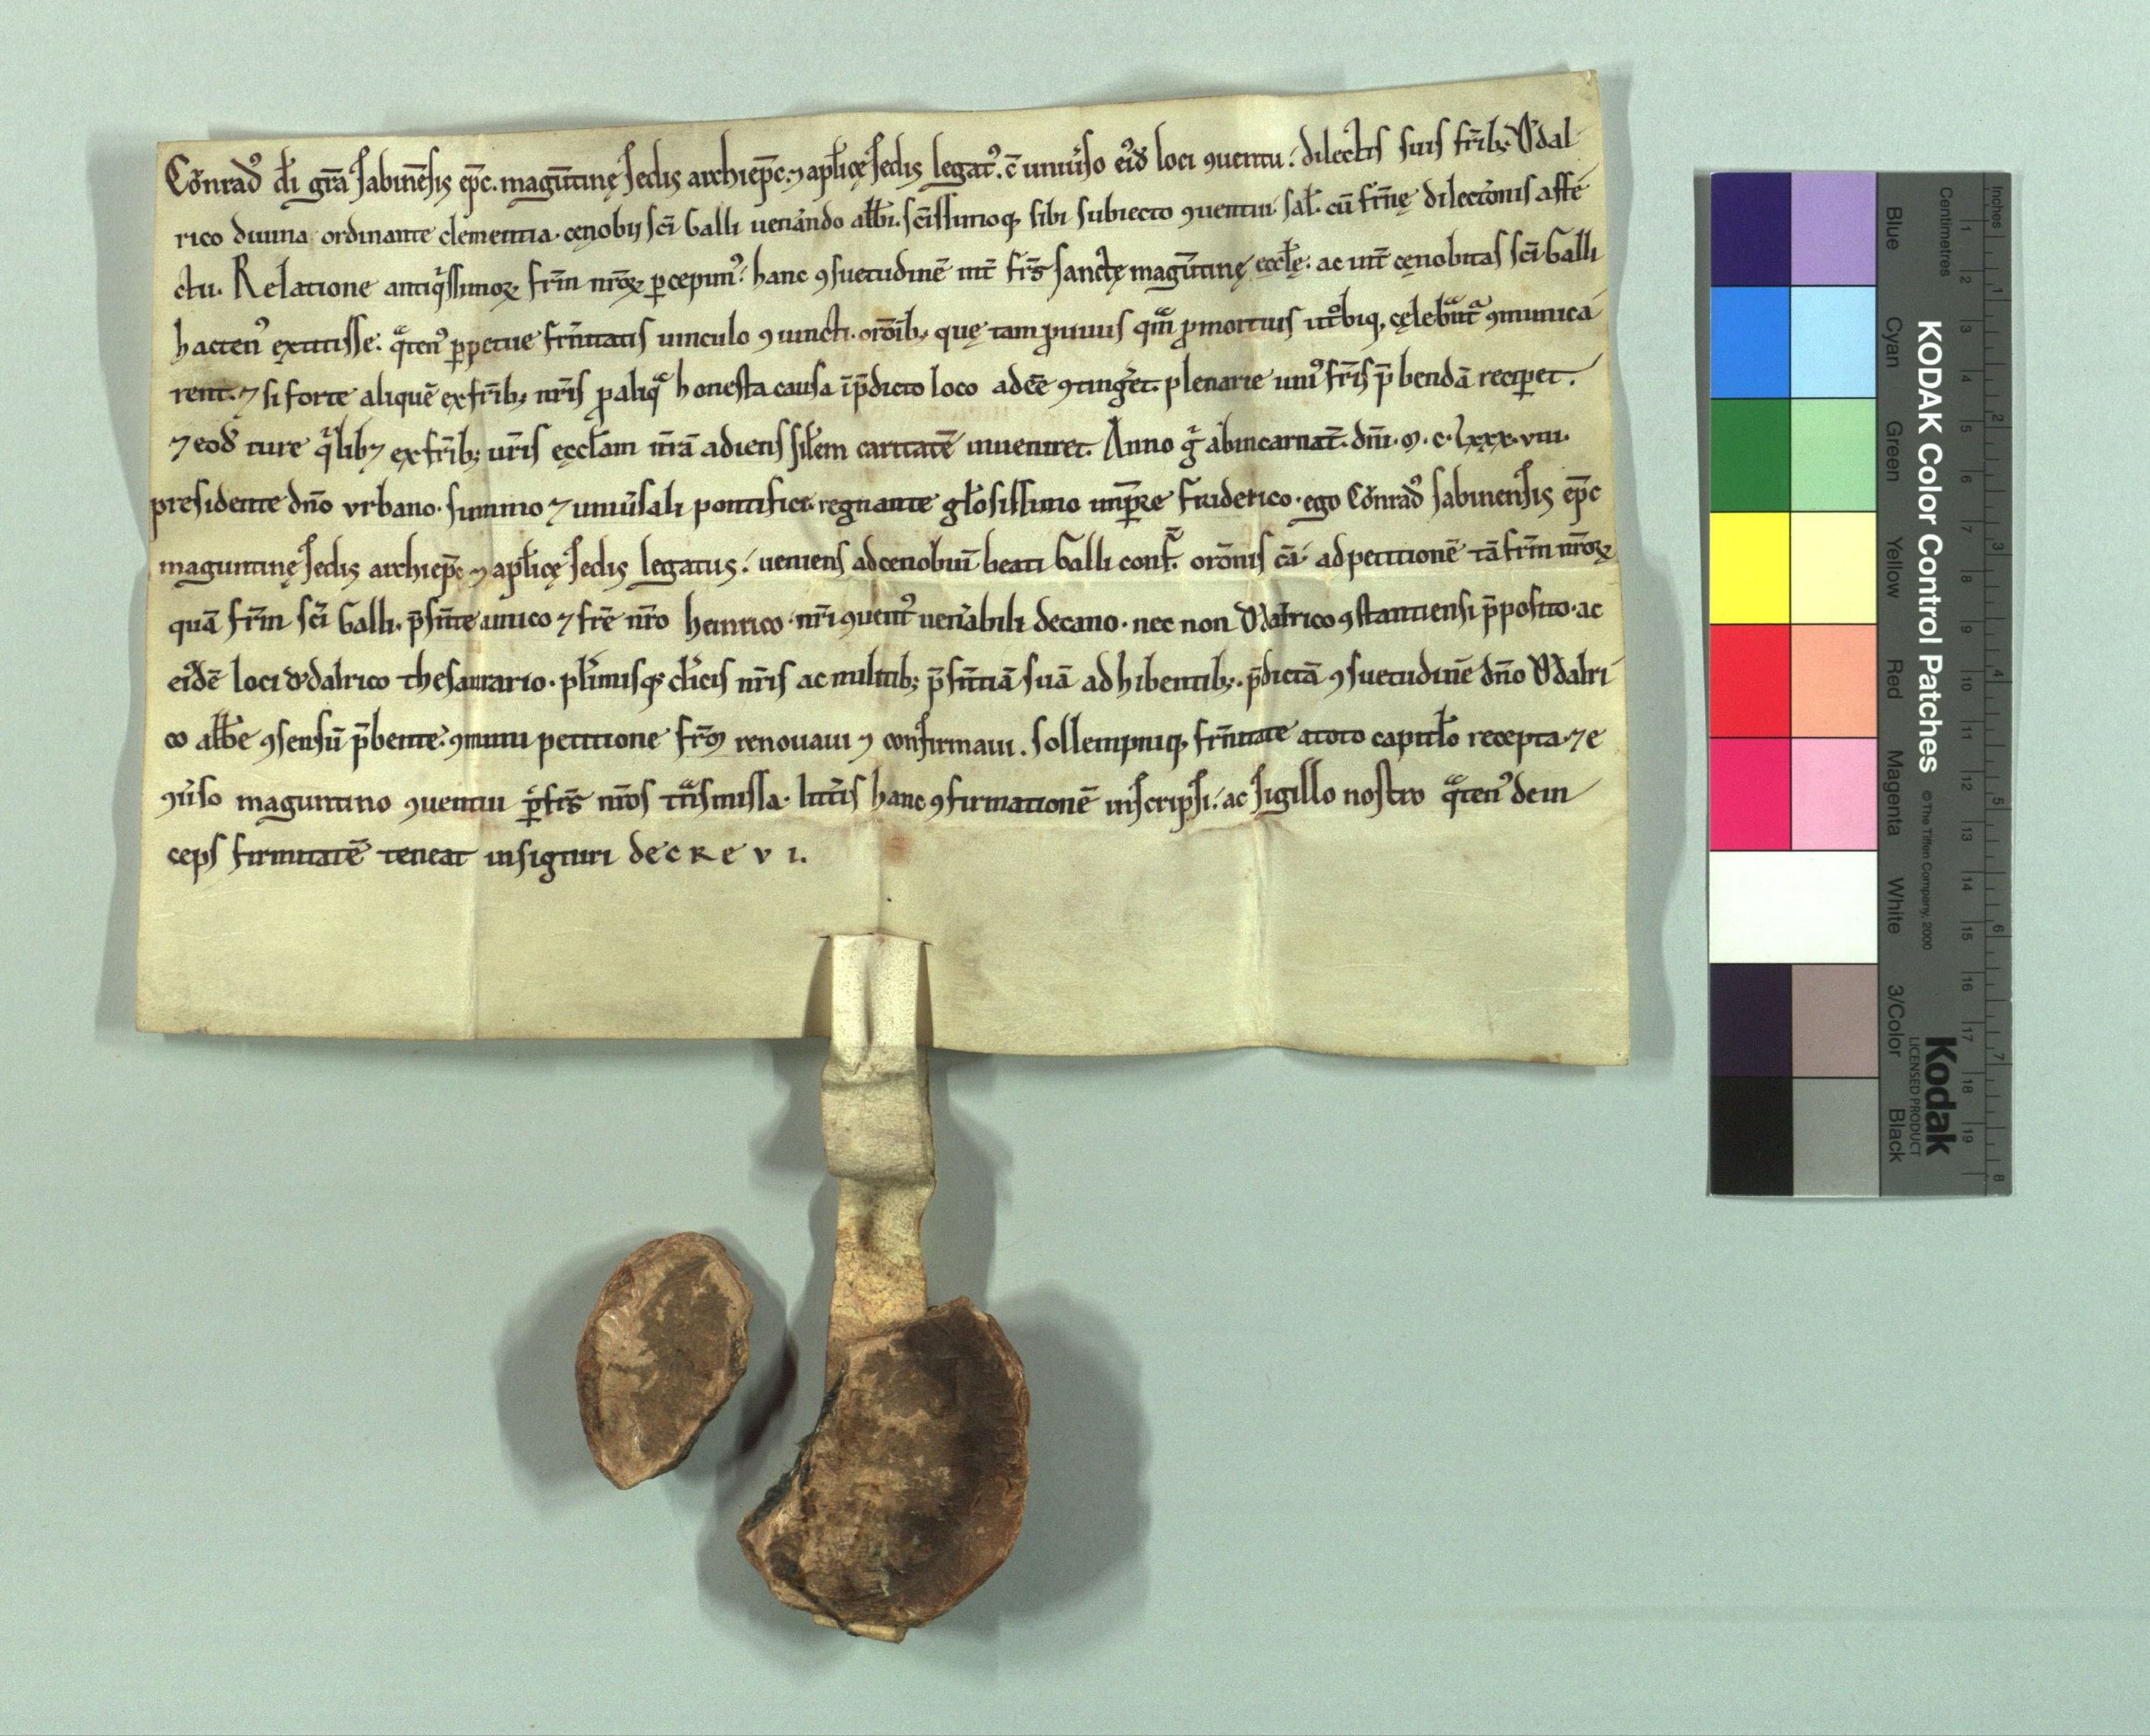 Cůnradꝰ dī gr̄a Sabinēsis ep̄c. magūtinę sedis archiep̄c. ⁊ apl̄icę sedis legatꝰ. c̄ uniuͥso eiꝰd̄ loci ꝯuentu. dilectis suis fr̄ib;. Ǒdal
rico diuina ordinante clementia. cenobij sc̄i Galli uenͥando abb̄i. sc̄issimoq; sibi subiecto ꝯuentui. sal̄. cū fr̄nę dilectōnis affe
ctu. Relatione antiqͥssimoꝝ fr̄m nr̄oꝝ ꝑcepimꝰ. hanc ꝯsuetudinē int̄ fr̄s sanctę magūtinę eccl̄ę. ac int̄ cęnobitas sc̄i Galli
hactenꝰ extitisse. qͣtenꝰ ꝑpetue fr̄nitatis uinculo ꝯiuncti. orōib;. quę tam ꝓ uiuis qͣm̄ ꝓ mortuis utͥobiq; cęlebͣnt̄ ꝯmunica
rent. ⁊ si forte aliquē ex fr̄ib; nr̄is ꝓ aliqͣ honesta causa ī p̄dicto loco adeē ꝯtingͥet. plenarie uniꝰ fr̄is p̄bendā reciꝑet.
⁊ eod̄ iure qͥlib⁊ ex fr̄ib; ur̄is ęccl̄am nr̄ā adiens sil̄em caritatē inueniret. Anno gͥ ab incarnat̄. dn̄i. ᴍ. c. lxxx. viii.
presidente dn̄o vrbano. summo ⁊ uniuͥsali pontifice. regnante gl̄osissimo imꝑre Friderico. ego Cůnradꝰ sabinensis ep̄c
maguntinę sedis archiep̄c ⁊ apl̄icę sedis legatus. ueniens ad cenobiū beati Galli conf̄. orōnis cā. ad petitionē tā fr̄m nr̄oꝝ
quā fr̄m sc̄i Galli. p̄sn̄te amico ⁊ fr̄e nr̄o heinrico. nr̄i ꝯuentꝰ uenͥabili decano. nec non Ǒdalrico ꝯstantiensi p̄posito. ac
eiꝰdē loci ǒdalrico thesaurario. plͥimisq; cl̄icis nr̄is ac militib; p̄sn̄tiā suā adhibentib;. p̄dictā ꝯsuetudinē dn̄o Ǒdalri
co abb̄e ꝯsensū p̄bente. ꝯmuni petitione fr̄m renouaui ⁊ confirmaui. Sollempniq; fr̄nitate a toto capitl̄o recepta. ⁊ e
ꝯuͥso maguntino ꝯuentui ꝑ fr̄s nr̄os tͣnsmissa. littͥis hanc ꝯfirmationē inscripsi. ac sigillo nostro qͣtenꝰ dein
ceps firmitatē teneat insigniri decrevi.
KODAK Color Control Patches
© The Tiffen Company, 2000
Kodak
LICENSED PRODUCT
Blue
Cyan
Green
Yellow
Red
Magenta
White
3/Color
Black
Inches
Centimetres
1 2 3 4 5 6 7 8
1 2 3 4 5 6 7 8 9 10 11 12 13 14 15 16 17 18 19